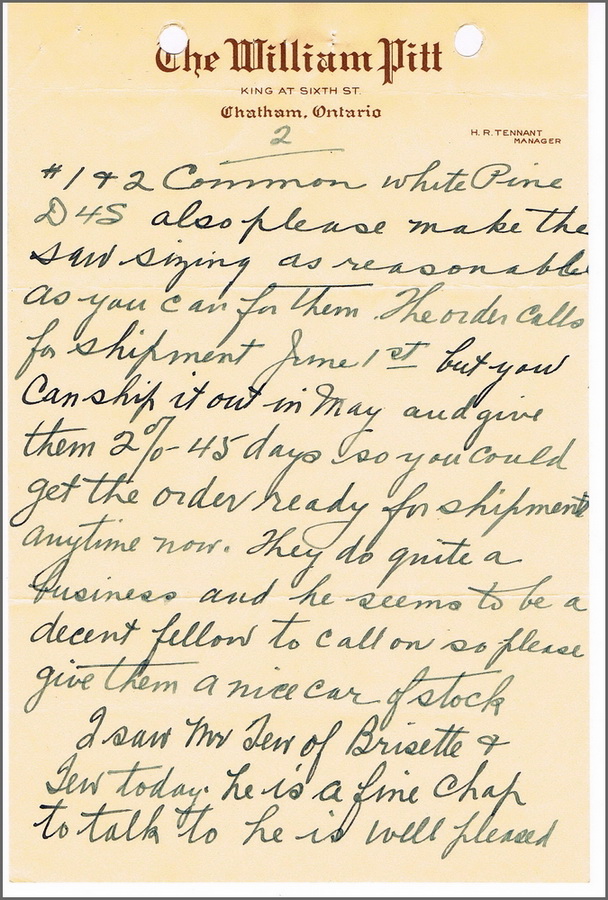 The William Pitt
KING AT SIXTH ST.
Chatham, Ontario
H. R. TENNANT
MANAGER
2
#1 & 2 Common white Pine
D4S also please make the
saw sizing as reasonable
as you can for them. The order calls
for shipment June 1st but you
Can ship it out in May and give
them 2% - 45 days so you could
get the order ready for shipment
anytime now. They do quite a
business and he seems to be a
decent fellow to call on so please
give them a nice car of stock
I saw Mr Tew of Brisette &
Tew today. he is a fine Chap
to talk to he is well pleased